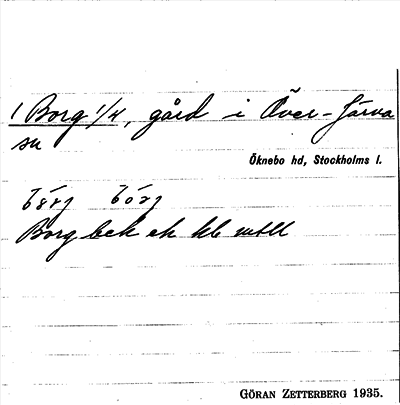 1 Borg 1/4, gård i Över-Järna
sn
Öknebo hd, Stockholms l.
Borg bek ek
GÖRAN ZETTERBERG 1935.